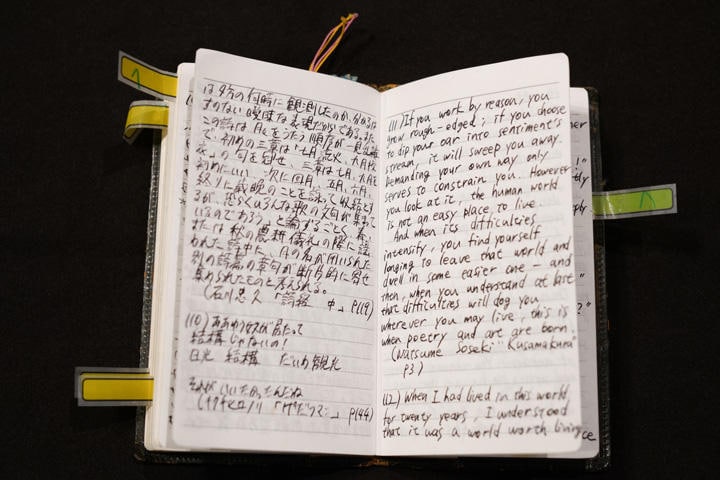 は夕方の何時に観測したのか、分かるは
ずのない曖昧な表現だからである。また
この詩は月々をうたう順序が一見乱雑
で、初めの三章は「七月流火、九月授
衣」の句を冠せ、三章は七月、九月を
初めにいい、次に四月、五月、六月、
終りに歳晩のことを詠って収結とす
るが、恐らくいろんな歌の文句が集って
いるのであろう」と論ずるごとく、春、
または秋の農耕儀礼の際に謡
われた詩中に、月の名が用いられた
別の詩篇の章句が断片的に寄せ
集められたものと考えられる。
(石川忠久『詩経 中』p119)
(10)
結構じゃないの!
日光 結構 だいわ観光
それが いいたかったんだね
p144)
(11) If you work by reason, you
grow rough-edged; if you choose
to dip your oar into sentiment's
stream, it will sweep you away.
Demanding your own way only
serves to constrain you. However
you look at it, the human world
is not an easy place to live.
And when its difficulties
intensify, you find yourself
longing to leave that world and
dwell in some easier one – and
then, when you understand at last
that difficulties will dog you
wherever you may live, this is
when poetry and art are born.
(Natsume Soseki "Kusamakura"
p3)
(12) When I had lived in this world
for twenty years, I understood
that it was a world worth living